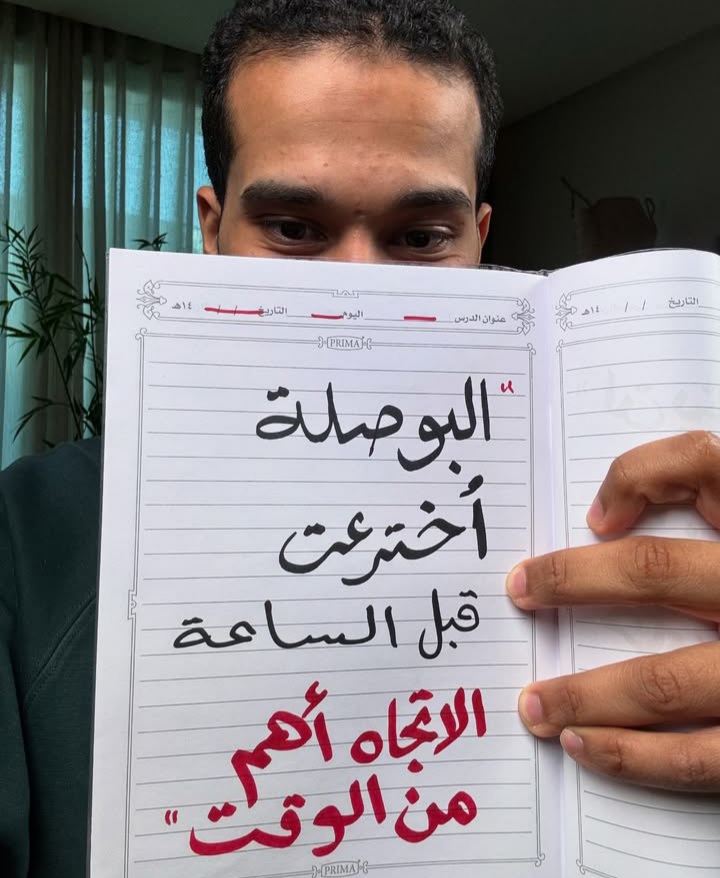 عنوان الدرس اليوم التاريخ / / ١٤هـ
PRIMA
"البوصلة
أُخترعت
قبل الساعة
الاتجاه أهم
من الوقت"
PRIMA
التاريخ / / ١٤هـ